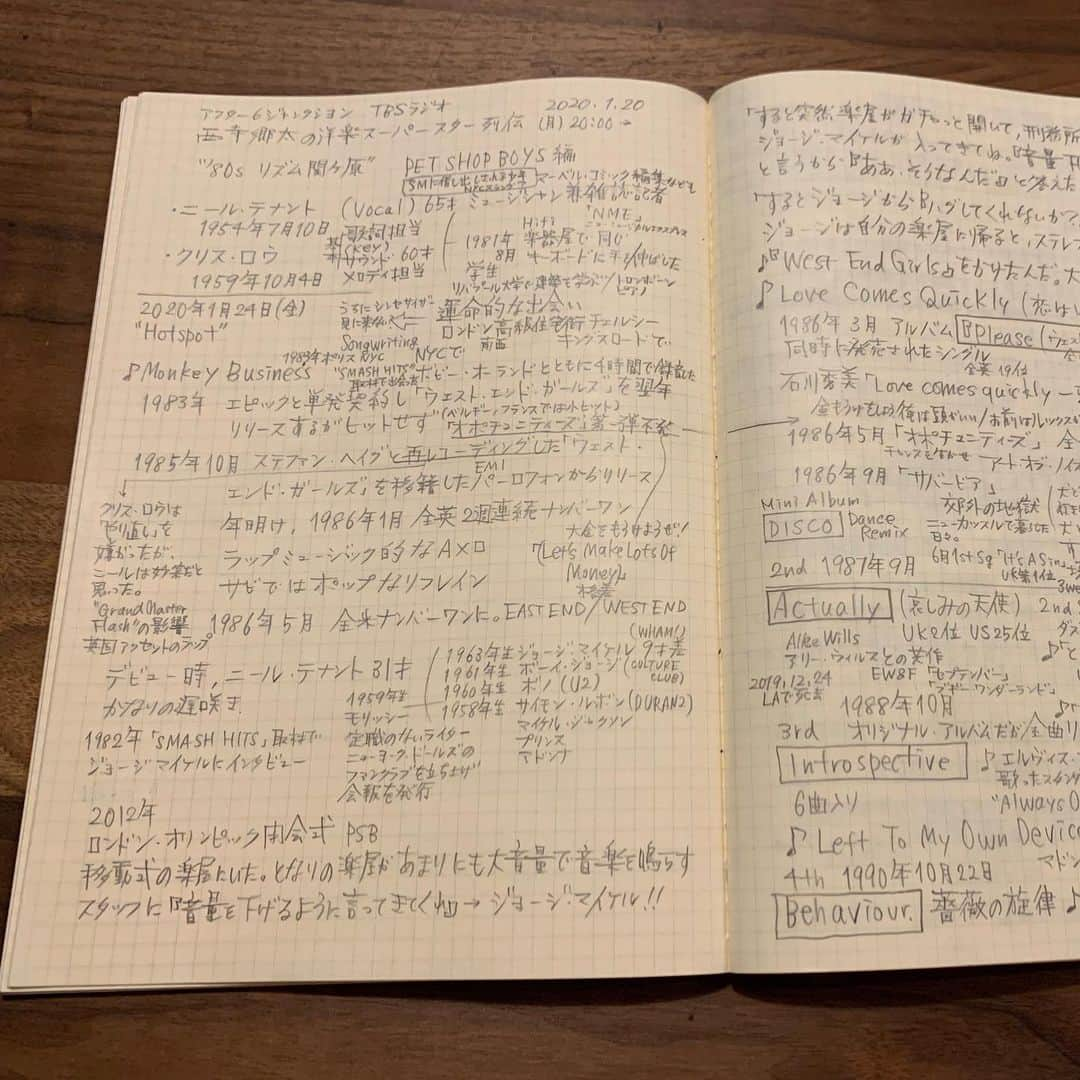 アフター6ジャンクション TBSラジオ 2020.1.20
西寺郷太の洋楽スーパースター列伝 (月) 20:00→
"'80s リズム関ヶ原" PET SHOP BOYS 編
マーベル・コミック編集なども
・ニール・テナント (Vocal) 65才 ミュージシャン兼雑誌記者
1954年7月10日 歌詞担当
HiFi 「NME」
・クリス・ロウ (Key) サウンド・60才
1959年10月4日 メロディ担当
1981年 楽器屋で同じ
8月 キーボードに手を伸ばした
学生
リバプール大学で建築を学ぶ/トロンボーン
ピアノ
2020年1月24日(金) うちにシンセサイザー
見に来ない?
運命的な出会い
"Hotspot" ロンドン高級住宅街 チェルシー
Songwriting 南西 キングスロードで
1983年ポリス NYC NYCで
♪Monkey Business "SMASH HITS" ボビー・オーランドとともに4時間で録音した
取材で出会った
1983年 エピックと単発契約し「ウェスト・エンド・ガールズ」を翌年
リリースするがヒットせず (ベルギー、フランスでは小ヒット)
「オポチュニティーズ」第一弾不発
1985年10月 ステファン・ヘイグと再レコーディングした「ウェスト・
エンド・ガールズ」を移籍したパーロフォンからリリース
EMI
クリス・ロウは
やり直しを
嫌がったが、
ニールは妙案だと
思った。
"Grand Master
Flash"の影響
英国アクセントのラップ
年明け, 1986年1月 全英2週連続ナンバーワン
大金をもうけようぜ!
ラップミュージック的なAメロ 「Let's Make Lots Of
Money」
サビではポップなリフレイン
1986年5月 全米ナンバーワンに。EAST END / WEST END
(WHAM!)
デビュー時, ニール・テナント31才
かなりの遅咲き.
1963年生 ジョージ・マイケル 9才差
1961年生 ボーイ・ジョージ (CULTURE
CLUB)
1960年生 ボノ (U2)
1958年生 サイモン・ルボン (DURAN2)
マイケル・ジャクソン
プリンス
マドンナ
1959年生
モリッシー
定職のないライター
ニューヨーク・ドールズの
ファンクラブを立ち上げ
会報を発行
1982年「SMASH HITS」取材で
ジョージマイケルにインタビュー
2012年
ロンドン・オリンピック閉会式 PSB
移動式の楽屋にいた。となりの楽屋があまりにも大音量で音楽を鳴らす
スタッフに『音量を下げるように言ってきてくれ』→ ジョージ・マイケル!!
「すると突然、楽屋がガチャっと開いて, 刑務所
ジョージ・マイケルが入ってきてね。
と言うから『ああ、そうなんだ』と答えた
「するとジョージから『ハグしてくれないか?
ジョージは自分の楽屋に帰ると, ステレ
♪『West End Girls』をかけたんだ。大
♪Love Comes Quickly (恋は
1986年3月 アルバム Please
同時に発売されたシングル
全英19位
石川秀美「Love comes quickly
金もうけをしよう俺は頭がいい/お前はルックスが
1986年5月「オポチュニティーズ」全
チャンスをなかせ アート・オブ・ノイ
1986年9月「サバービア」
郊外の地獄
ニューカッスルで暮らした
日々。
Mini Album
DISCO Dance
Remix
2nd 1987年9月 6月1st Sg 「It's A Sin
UK第1位
Actually (哀しみの天使)
UK2位 US25位
Allee Wills
アリー・ウィルスとの共作
EW&F 「セプテンバー」
「ブギー・ワンダーランド」
2019.12.24
LAで死去
1988年10月
3rd オリジナル・アルバムだが全曲リ
Introspective ♪エルヴィス・
歌ったスタン
6曲入り "Always O
♪Left To My Own Device
4th 1990年10月22日 マドン
Behaviour. 薔薇の旋律 ♪